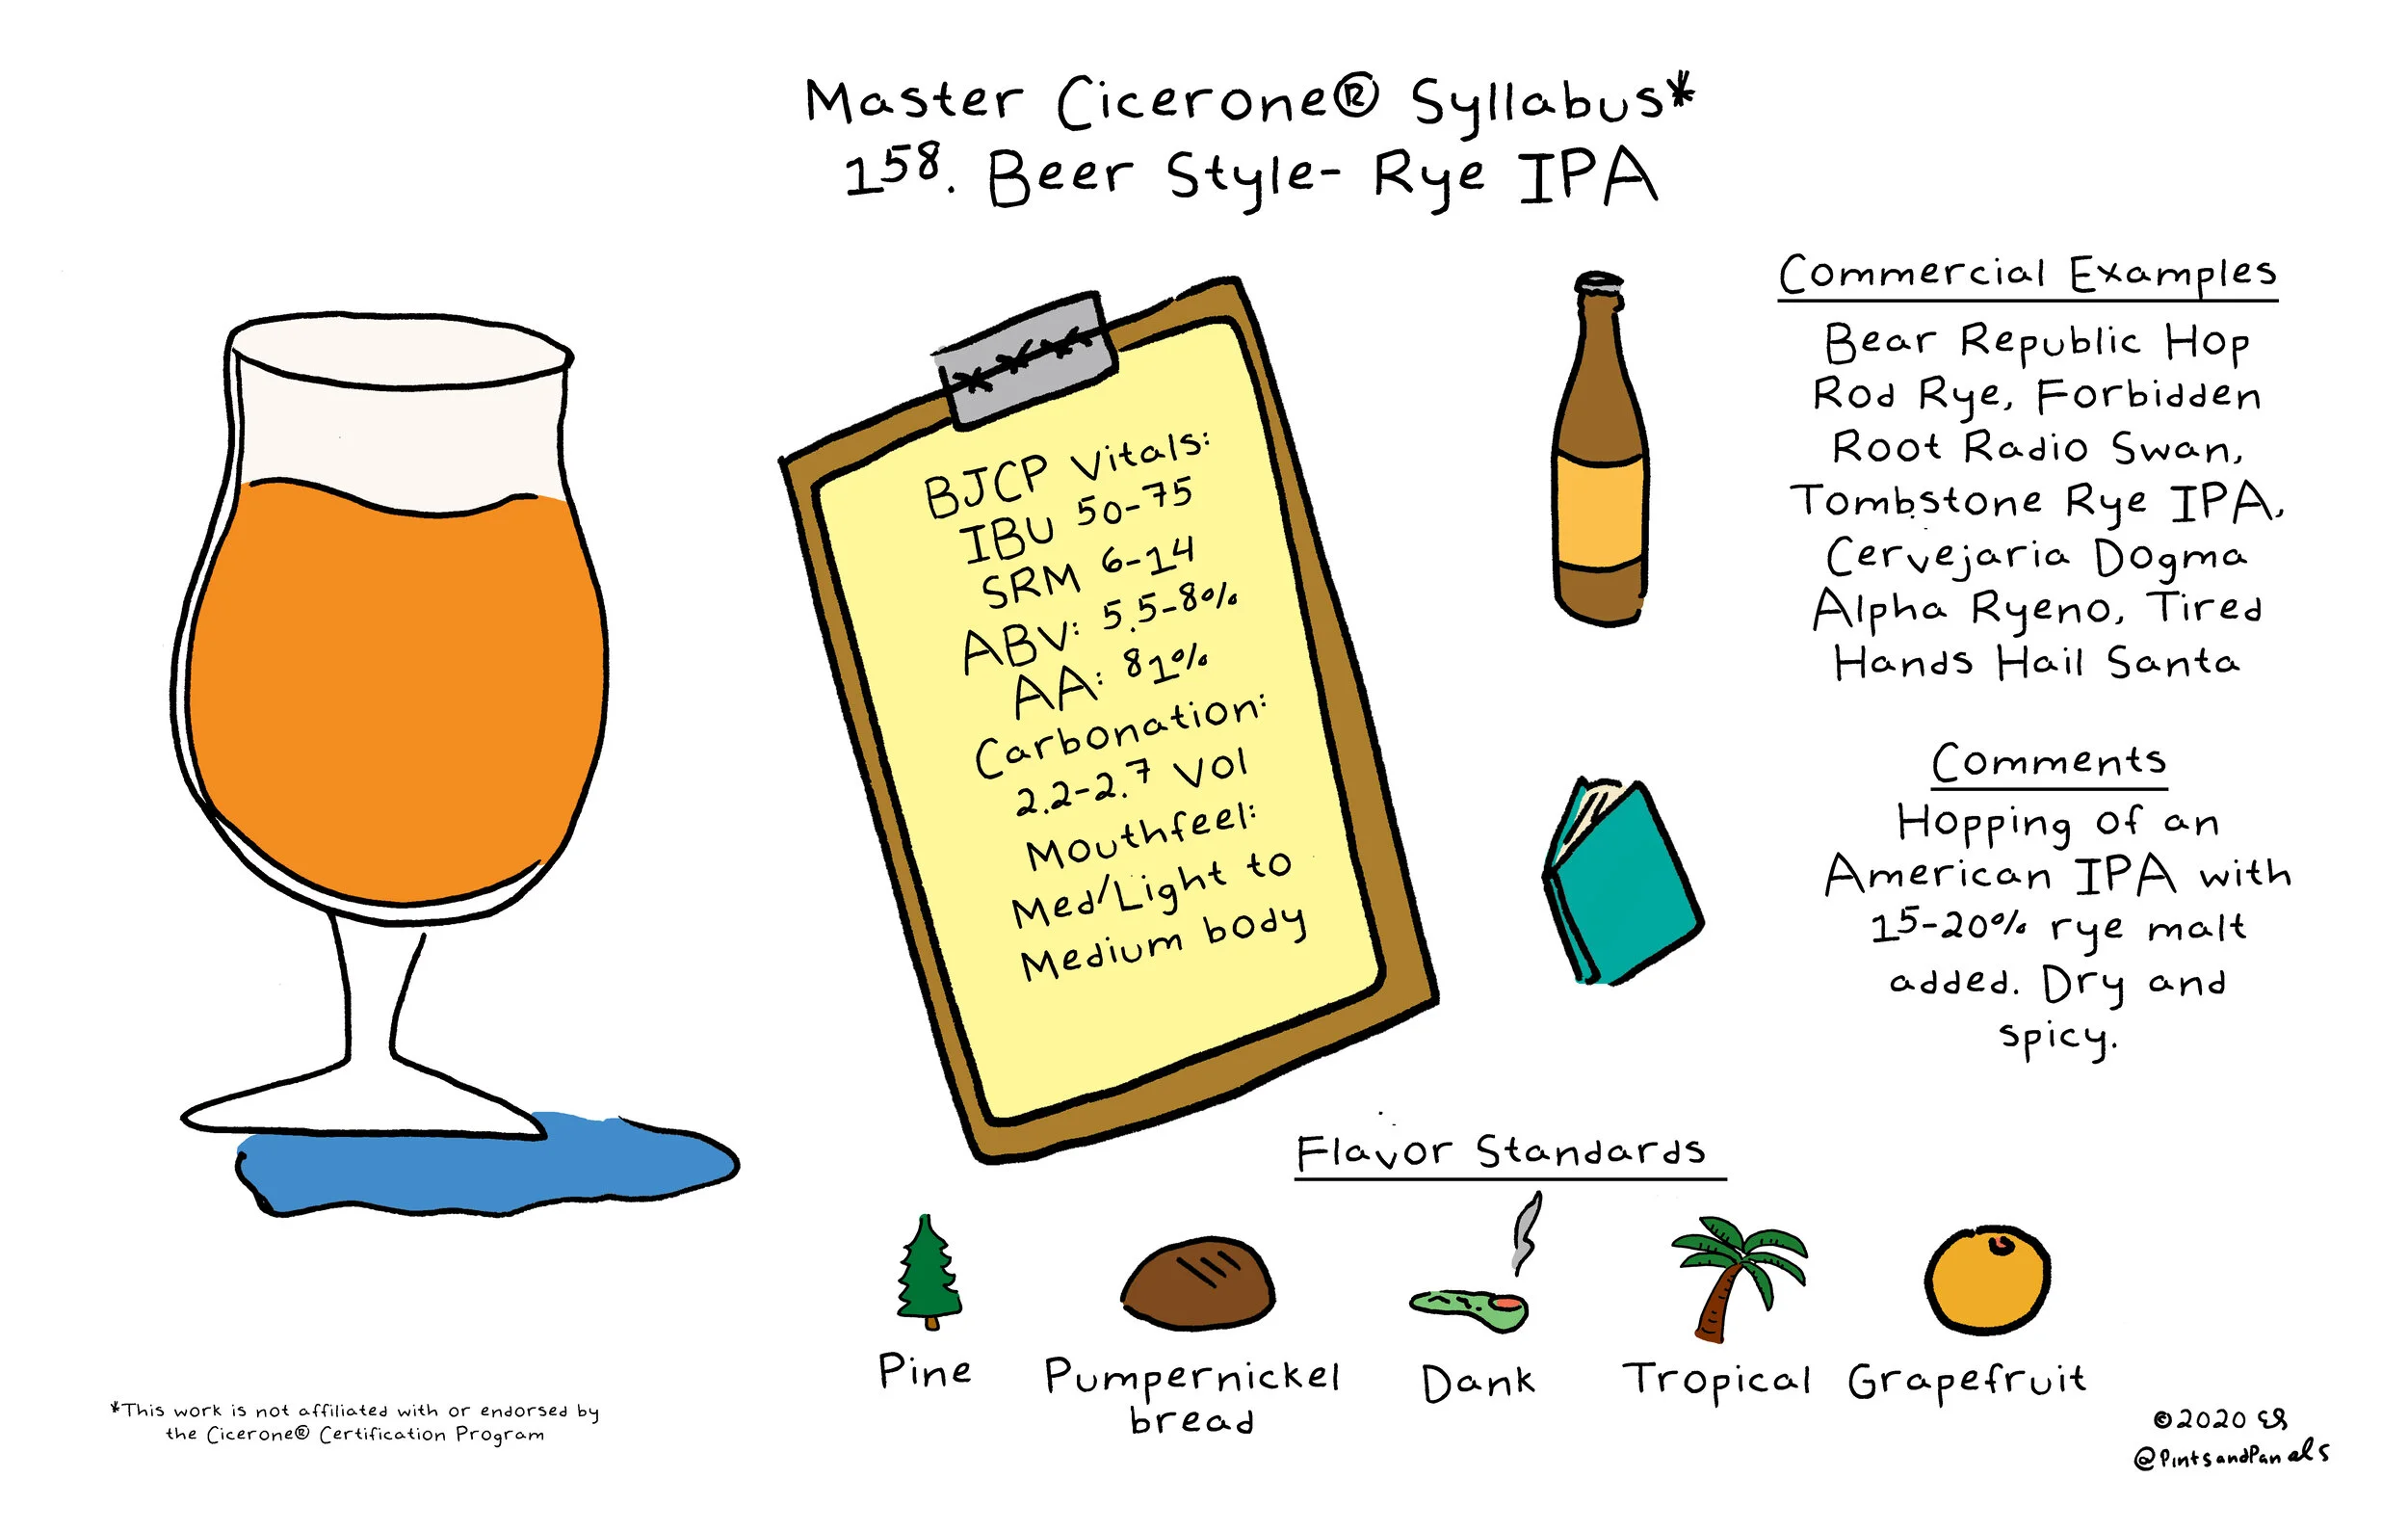 Master Cicerone® Syllabus*
158. Beer Style- Rye IPA
BJCP Vitals:
IBU 50-75
SRM 6-14
ABV: 5.5-8%
AA: 81%
Carbonation:
2.2-2.7 Vol
Mouthfeel:
Med/Light to
Medium body
Commercial Examples
Bear Republic Hop
Rod Rye, Forbidden
Root Radio Swan,
Tombstone Rye IPA,
Cervejaria Dogma
Alpha Ryeno, Tired
Hands Hail Santa
Comments
Hopping of an
American IPA with
15-20% rye malt
added. Dry and
spicy.
Flavor Standards
Pine
Pumpernickel
bread
Dank
Tropical
Grapefruit
*This work is not affiliated with or endorsed by
the Cicerone® Certification Program
©2020 ES
@PintsandPanels